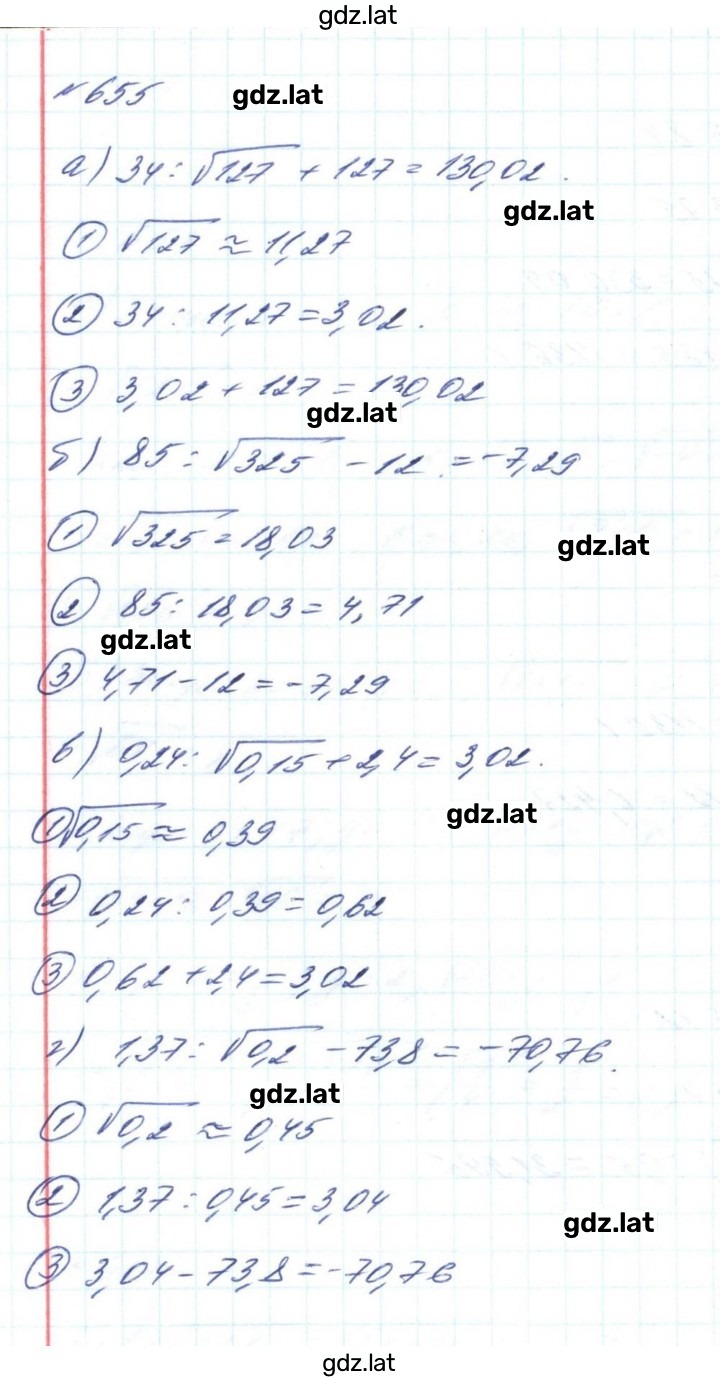 gdz.lat
№ 655 gdz.lat
а) 34 : √127 + 127 = 130,02.
gdz.lat
① √127 ≈ 11,27
② 34 : 11,27 = 3,02.
③ 3,02 + 127 = 130,02
gdz.lat
б) 85 : √325 - 12 = -7,29
① √325 = 18,03
gdz.lat
② 85 : 18,03 = 4,71
gdz.lat
③ 4,71 - 12 = -7,29
в) 0,24 : √0,15 + 2,4 = 3,02.
gdz.lat
① √0,15 ≈ 0,39
② 0,24 : 0,39 = 0,62
③ 0,62 + 2,4 = 3,02
г) 1,37 : √0,2 - 73,8 = -70,76.
gdz.lat
① √0,2 ≈ 0,45
② 1,37 : 0,45 = 3,04
gdz.lat
③ 3,04 - 73,8 = -70,76
gdz.lat